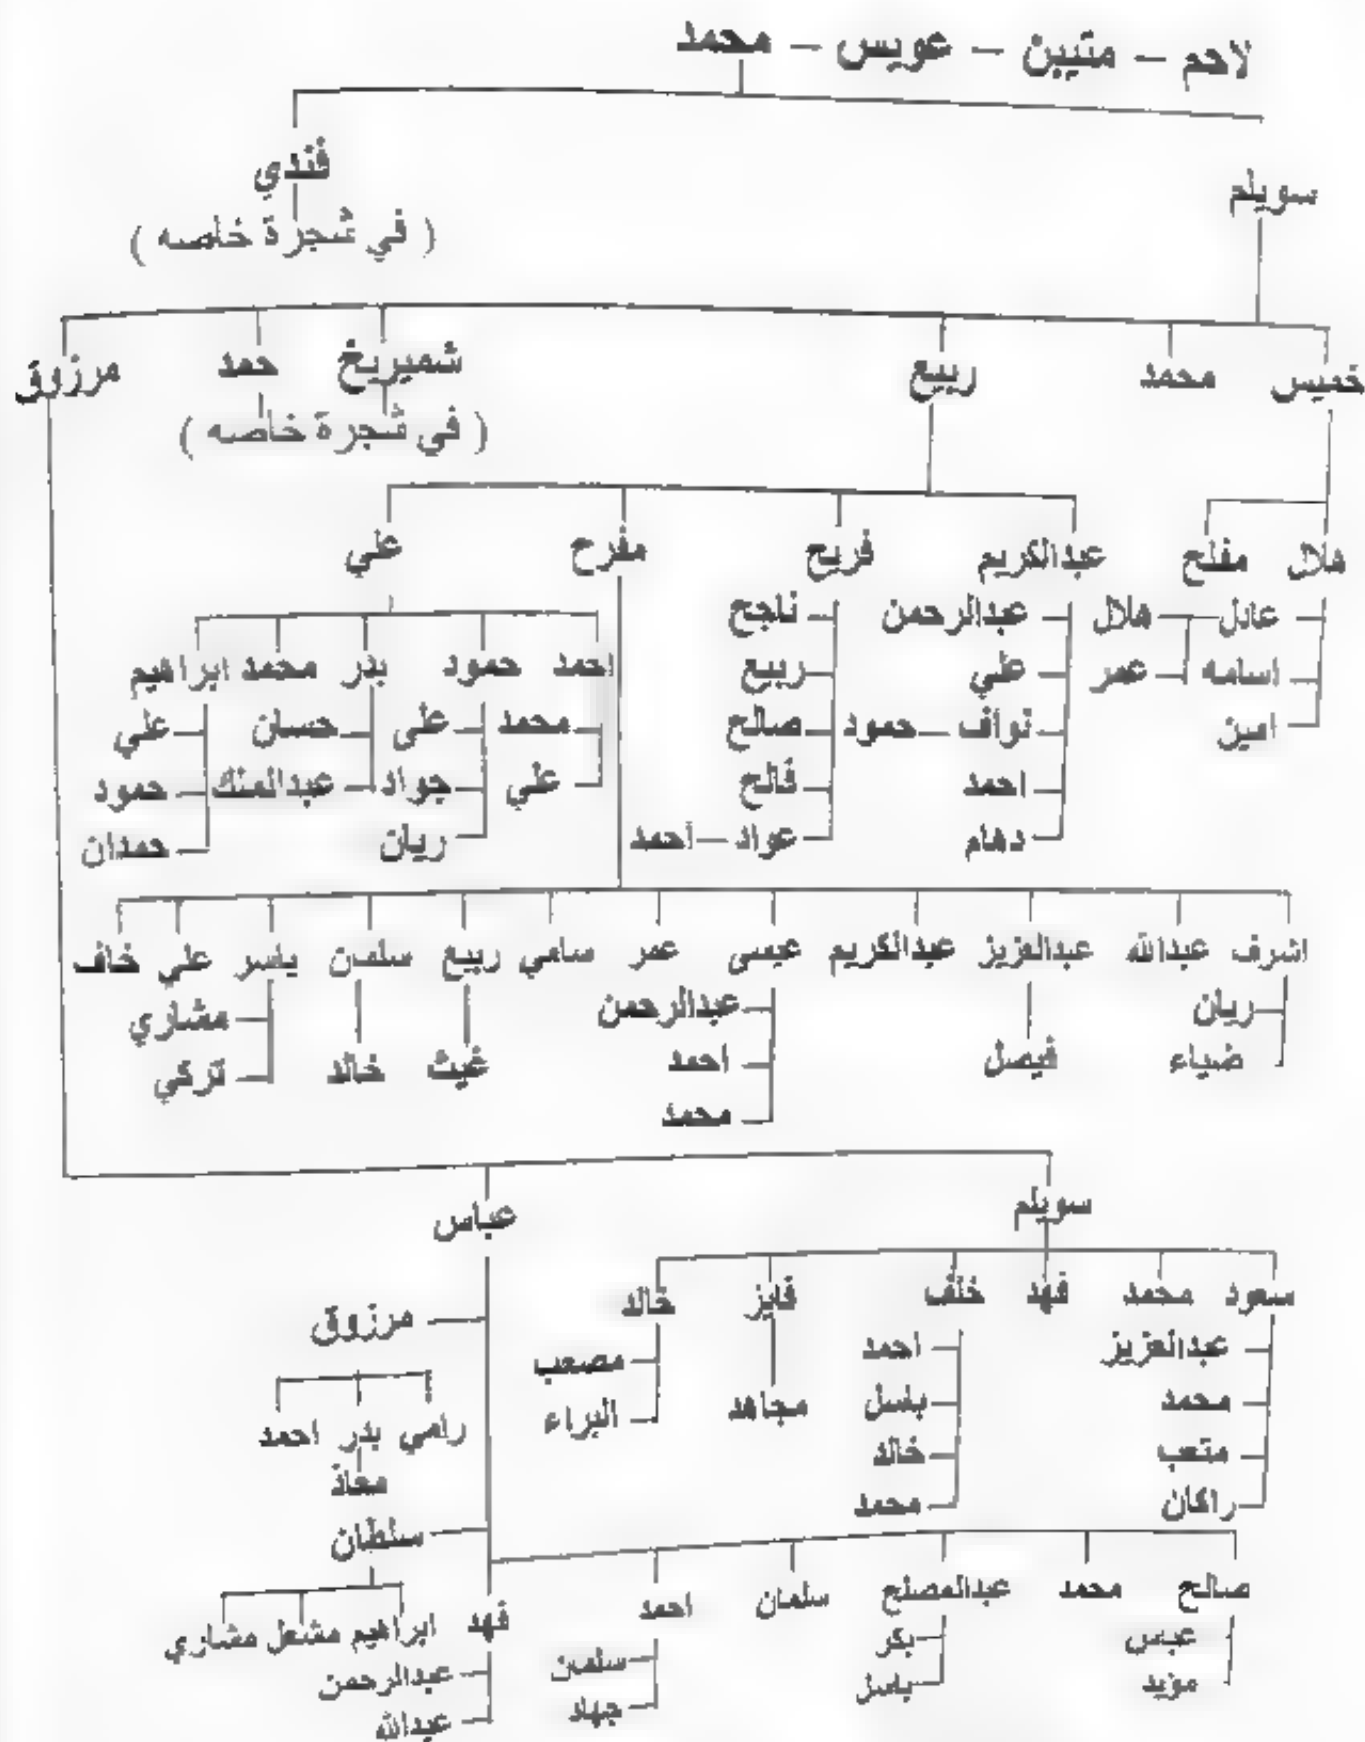 لاحم – متيبن – عويس – محمد
سويلم
فندي
( في شجرة خاصه )
خميس
محمد
ربيع
شميريخ
حمد
مرزوق
( في شجرة خاصه )
هلال
مفلح
عبدالكريم
فريح
مفرح
علي
عادل
اسامه
امين
هلال
عمر
عبدالرحمن
علي
نواف – حمود
احمد
دهام
ناجح
ربيع
صالح
فالح
عواد – احمد
احمد
حمود
بدر
محمد
ابراهيم
محمد
علي
علي
جواد
ريان
حسان
عبدالملك
علي
حمود
حمدان
اشرف
عبدالله
عبدالعزيز
عبدالكريم
عيسى
عمر
سامي
ربيع
سلمان
ياسر
علي
خاف
ريان
ضياء
فيصل
عبدالرحمن
احمد
محمد
غيث
خالد
مشاري
تركي
سويلم
عباس
سعود
محمد
فهد
خلف
فايز
خالد
عبدالعزيز
محمد
متعب
راكان
احمد
باسل
خالد
محمد
مجاهد
مصعب
البراء
مرزوق
رامي
بدر
احمد
معاذ
سلطان
ابراهيم
مشعل
مشاري
صالح
محمد
عبدالمصلح
سلمان
احمد
فهد
عباس
مؤيد
بكر
باسل
سلمان
جهاد
عبدالرحمن
عبدالله